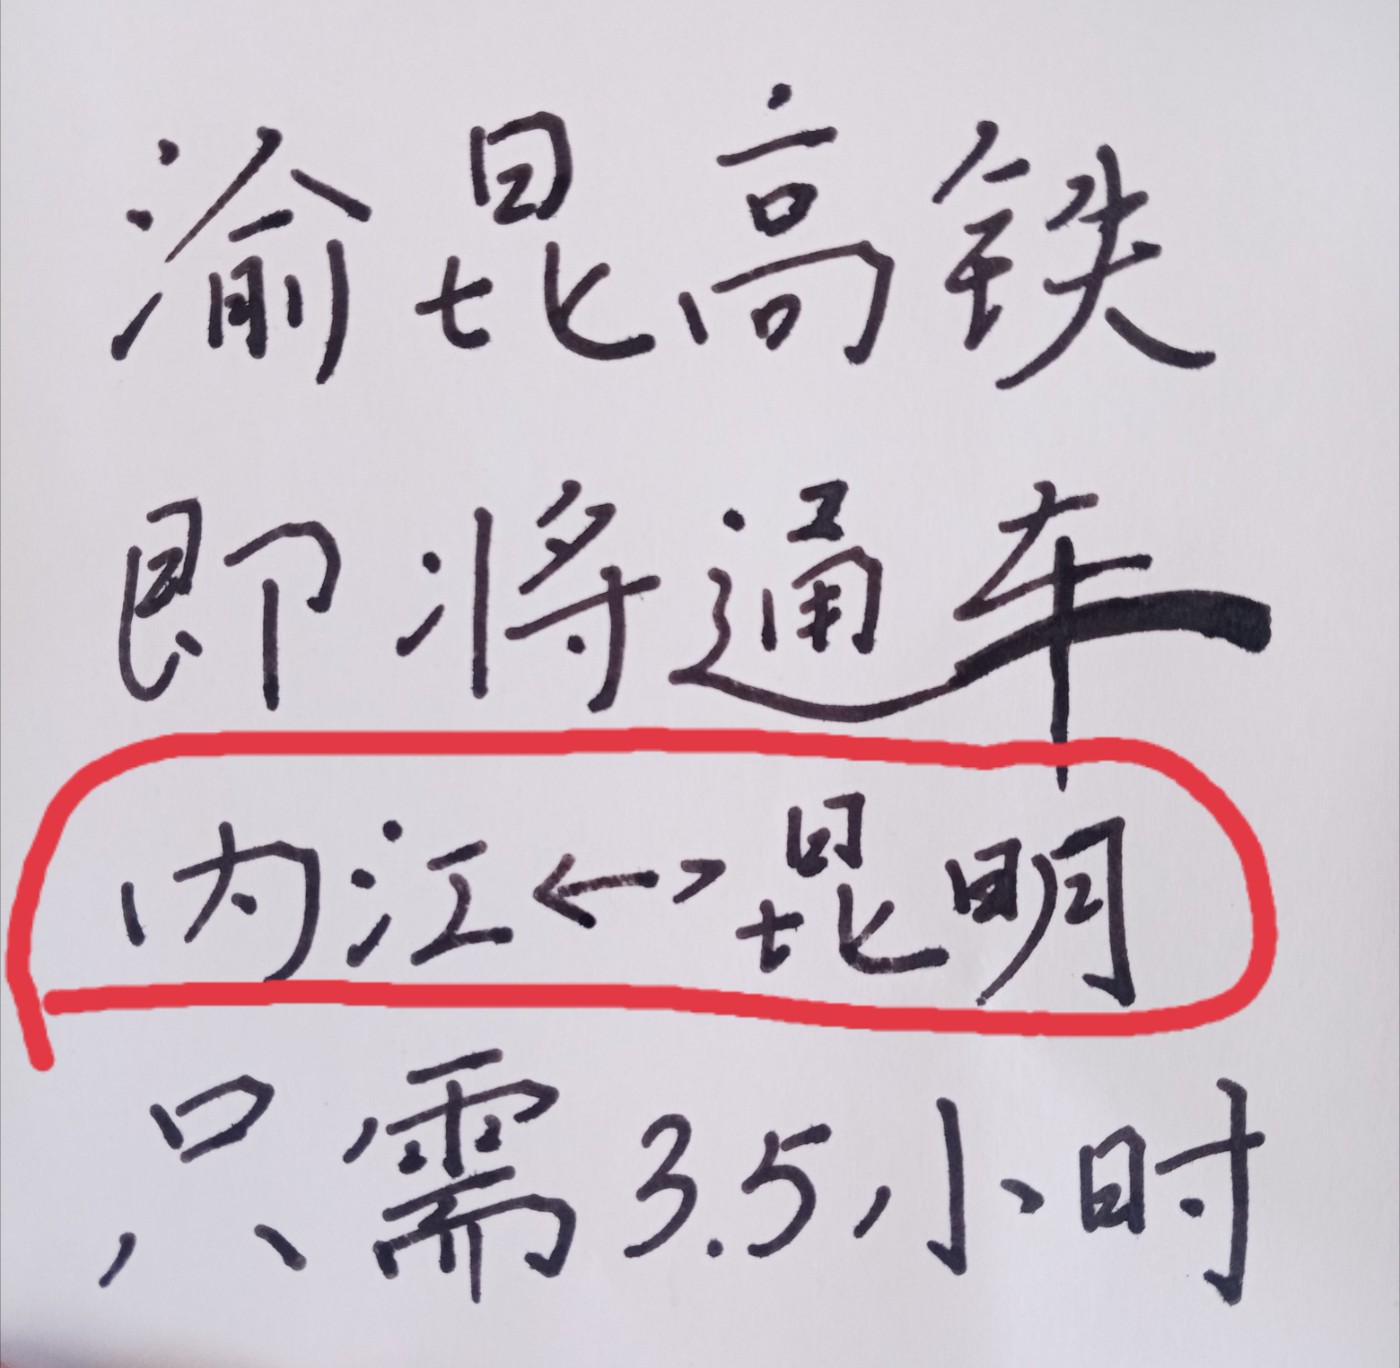 渝昆高铁
即将通车
内江<->昆明
只需3.5小时